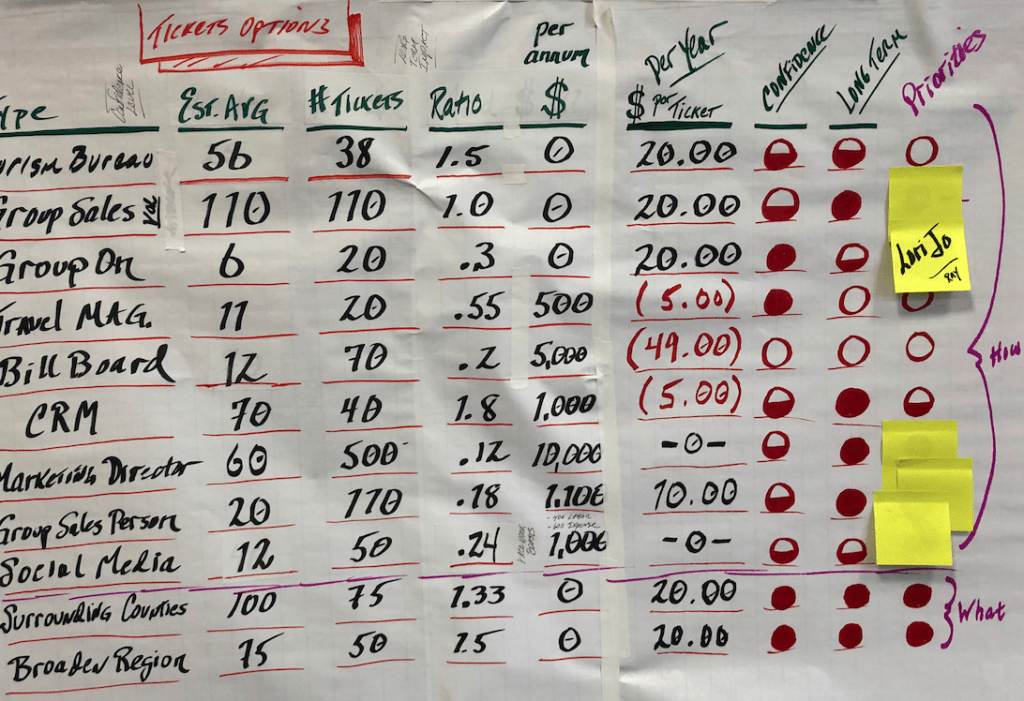 TICKETS OPTIONS
per annum
Per Year
Confidence Level
Long Term Impact
ype Est. Avg # Tickets Ratio $ $ per Ticket Confidence Long Term Priorities
urism Bureau 56 38 1.5 0 20.00
Group Sales 110 110 1.0 0 20.00
Lori Jo
Group On 6 20 .3 0 20.00
ravel MAG. 11 20 .55 500 (5.00)
Bill Board 12 70 .2 5,000 (49.00) How
CRM 70 40 1.8 1,000 (5.00)
Marketing Director 60 500 .12 10,000 -0-
Group Sales Person 20 110 .18 1,100 10.00
Social Media 12 50 .24 1,000 -0-
Surrounding Counties 100 75 1.33 0 20.00 What
Broaden Region 75 50 1.5 0 20.00